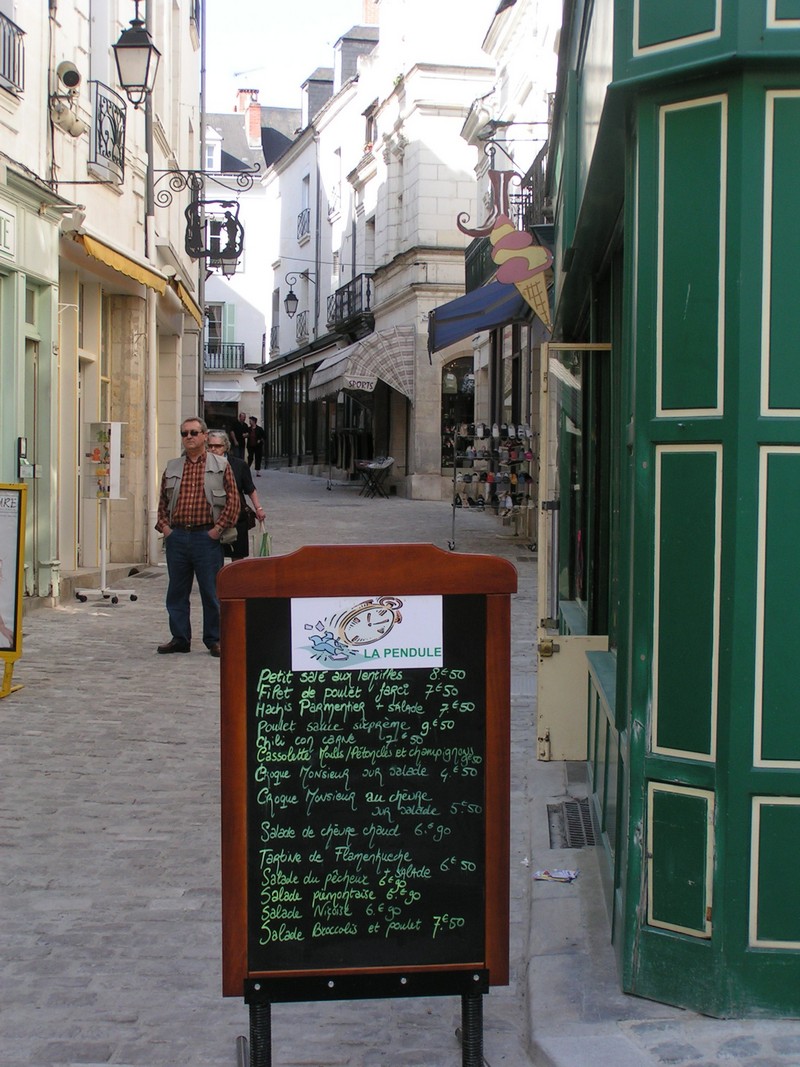 SPORTS
URE
LA PENDULE
Petit salé aux lentilles 8€50
Filet de poulet farci 7€50
Hachis Parmentier + salade 7€50
Poulet sauce suprème 9€50
Chili con carne 7€50
Cassolette Moules/Pétoncles et champignons
Croque Monsieur sur salade 4.€50
Croque Monsieur au chèvre
sur salade 5.€50
Salade de chèvre chaud 6.€90
Tartine de Flamenkueche
+ salade 6.€50
Salade du pêcheur 6€90
Salade piémontaise 6.€90
Salade Niçoise 6.€90
Salade Broccolis et poulet 7.€50